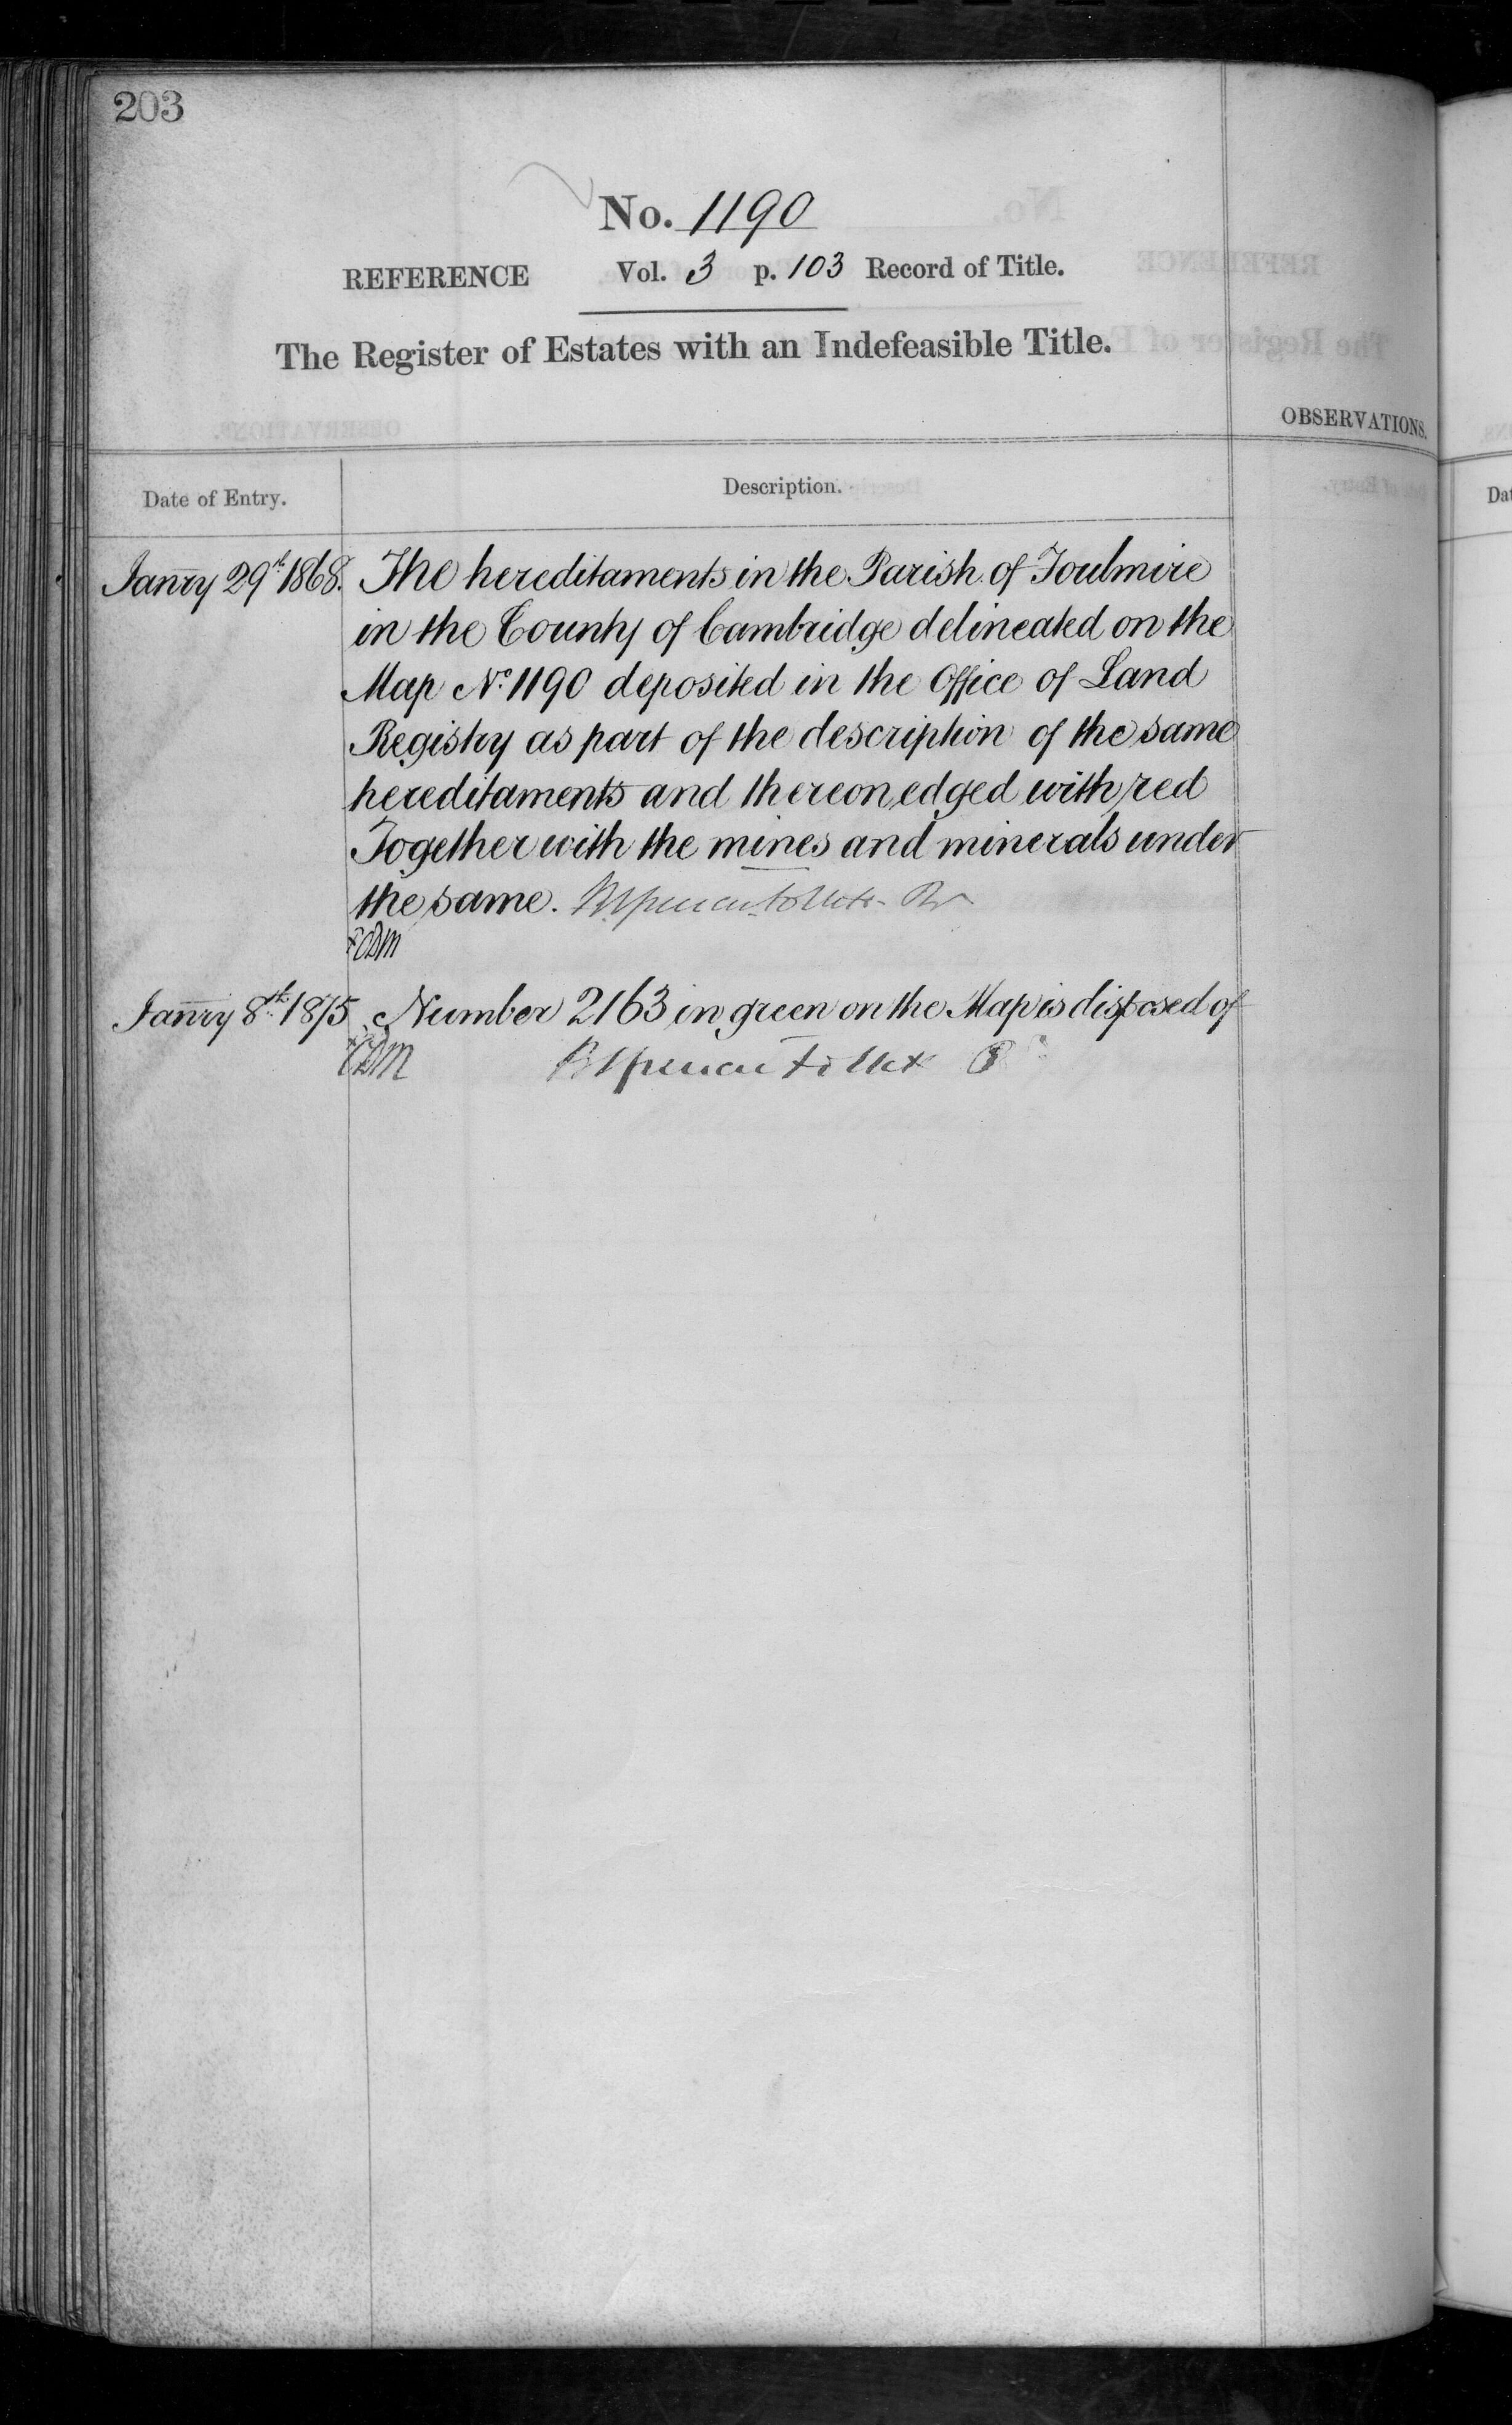 203
No. 1190
REFERENCE Vol. 3 p. 103 Record of Title.
The Register of Estates with an Indefeasible Title.
OBSERVATIONS.
Date of Entry. Description.
Janry 29th 1868. The hereditaments in the Parish of Foulmire
in the County of Cambridge delineated on the
Map No. 1190 deposited in the Office of Land
Registry as part of the description of the same
hereditaments and thereon edged with red
Together with the mines and minerals under
the same.
Janry 8th 1875 Number 2163 in green on the Map is disposed of